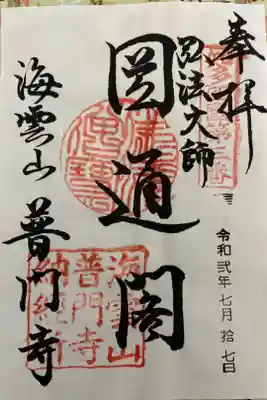 奉拝
弘法大師
圓通閣
海雲山 普門寺
令和弐年七月拾七日
海雲山
普門寺
納経所